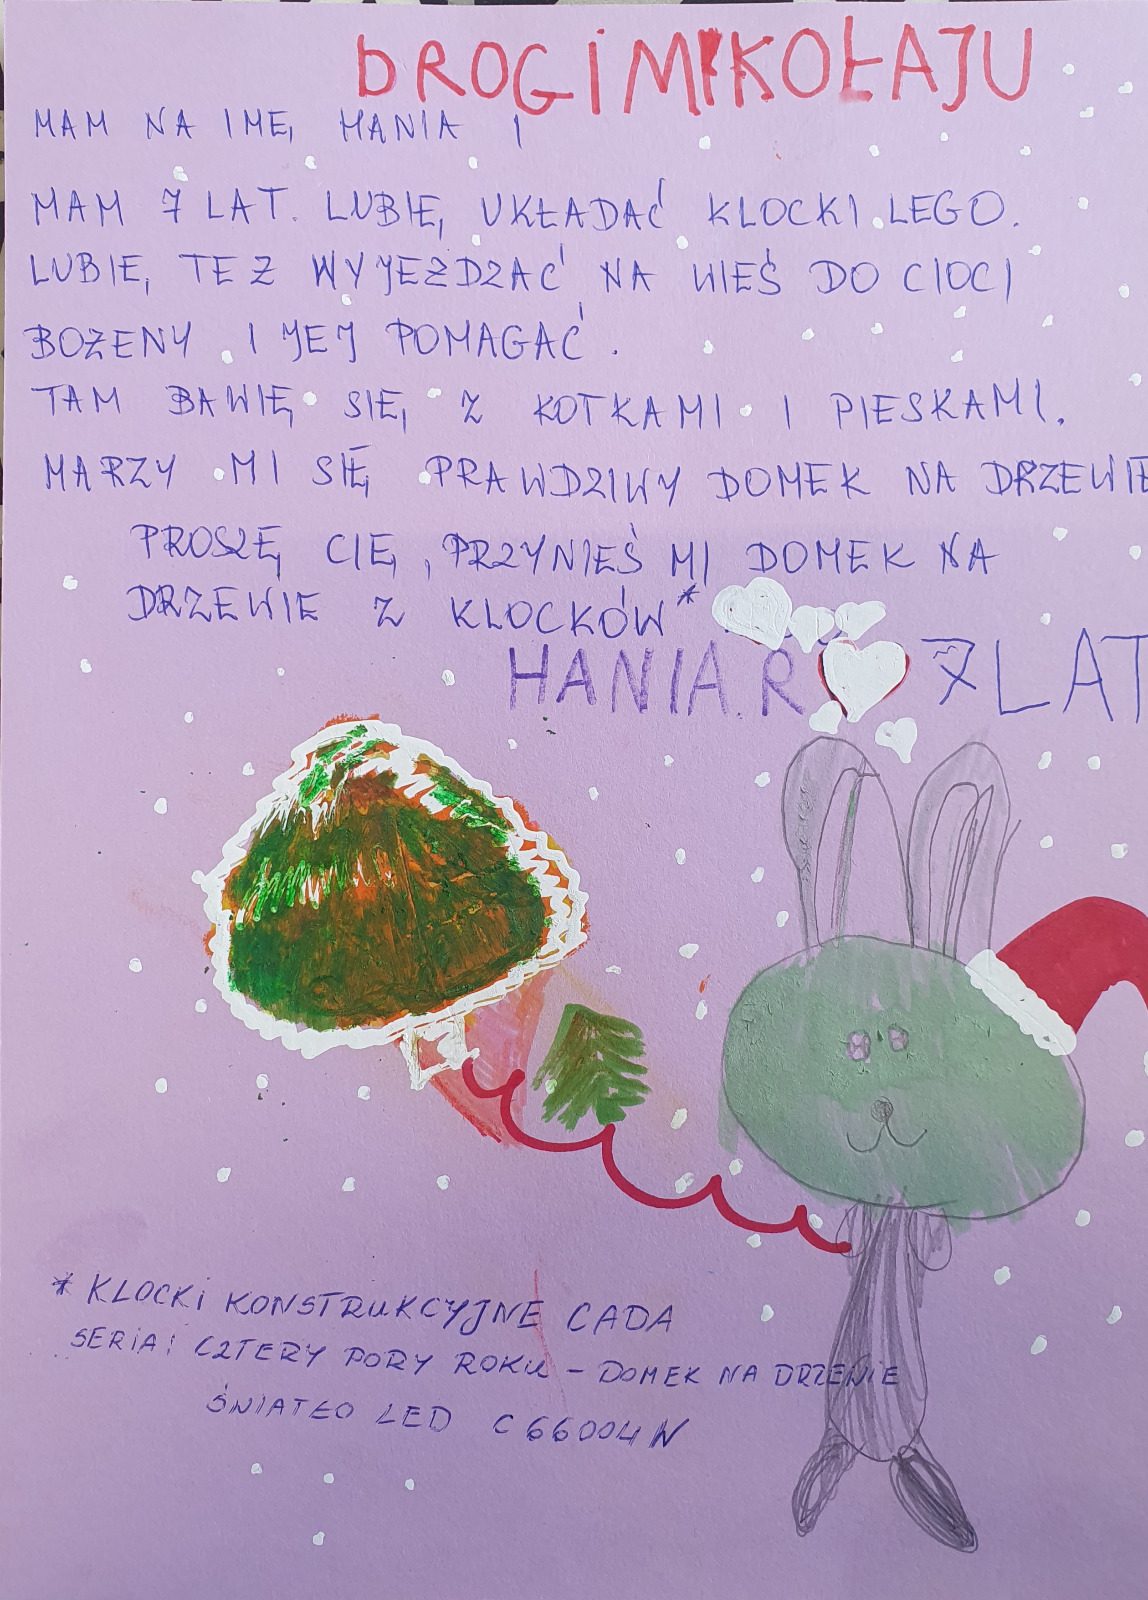 DROGI MIKOŁAJU
MAM NA IMĘ HANIA I
MAM 7 LAT. LUBIĘ UKŁADAĆ KLOCKI LEGO.
LUBIĘ TEŻ WYJEŻDZAĆ NA WIEŚ DO CIOCI
BOŻENY I JEJ POMAGAĆ.
TAM BAWIĘ SIĘ Z KOTKAMI I PIESKAMI.
MARZY MI SIĘ PRAWDZIWY DOMEK NA DRZEWIE
PROSZĘ CIĘ, PRZYNIEŚ MI DOMEK NA
DRZEWIE Z KLOCKÓW*
HANIA.R 7 LAT
* KLOCKI KONSTRUKCYJNE CADA
SERIA: CZTERY PORY ROKU - DOMEK NA DRZEWIE
ŚWIATŁO LED C66004W